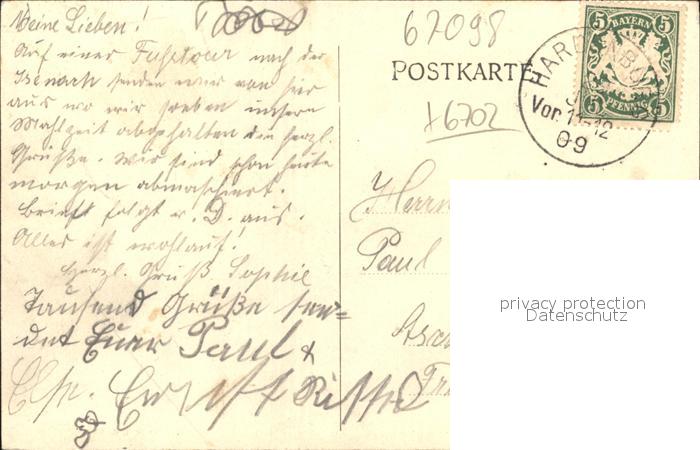 Meine Lieben!
Auf einer Fußtour nach der
senden wir von hier
aus wo wir soeben unsere
Mahlzeit abgehalten die herzl.
Grüße. Wir sind schon heute
morgen abmarschiert.
Brief folgt v. D. aus.
Alles ist wohlauf!
Herzl. Gruß Sophie
Tausend Grüße sen=
det Euer Paul &
67098
POSTKARTE
+6702
5 BAYERN 5
5 PFENNIG 5
HARD
Vor. 11-12
09
Herrn
Paul
privacy protection
Datenschutz